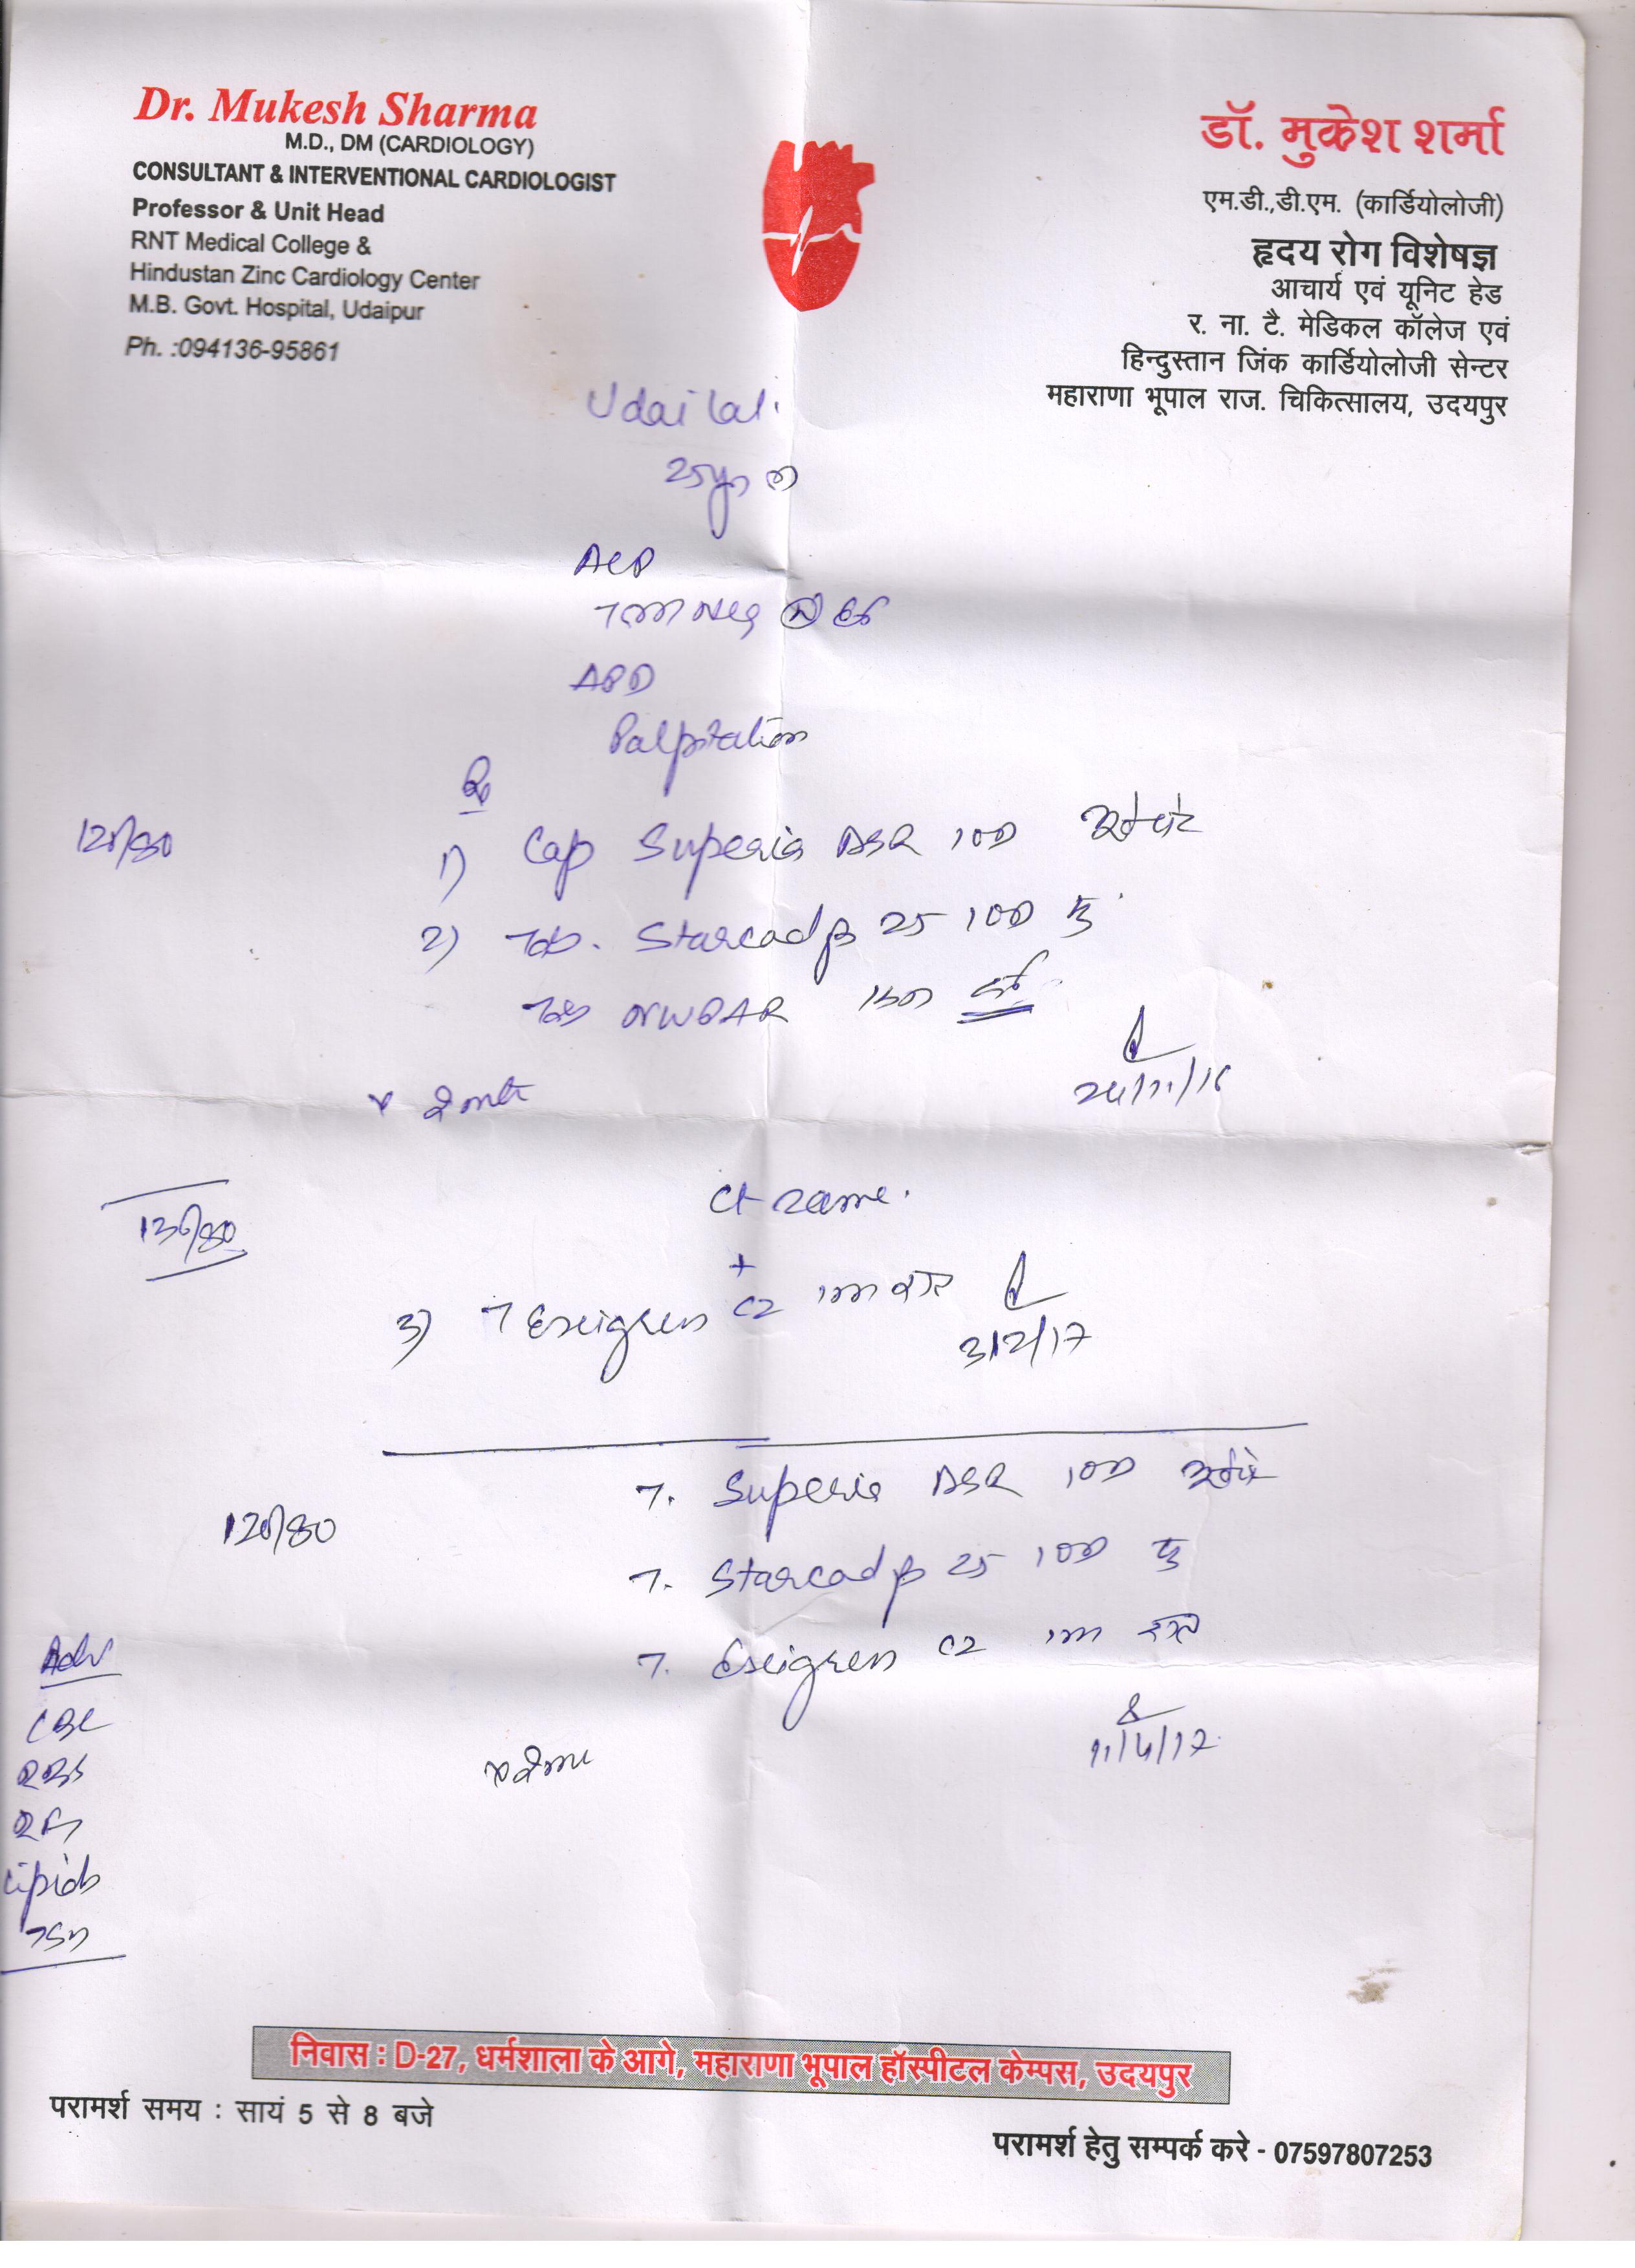 Dr. Mukesh Sharma
M.D., DM (CARDIOLOGY)
CONSULTANT & INTERVENTIONAL CARDIOLOGIST
Professor & Unit Head
RNT Medical College &
Hindustan Zinc Cardiology Center
M.B. Govt. Hospital, Udaipur
Ph. :094136-95861
डॉ. मुकेश शर्मा
एम.डी.,डी.एम. (कार्डियोलोजी)
हृदय रोग विशेषज्ञ
आचार्य एवं यूनिट हेड
र. ना. टै. मेडिकल कॉलेज एवं
हिन्दुस्तान जिंक कार्डियोलोजी सेन्टर
महाराणा भूपाल राज. चिकित्सालय, उदयपुर
Udai Lal.
25yrs
ACP
TMT Neg (N) EF
APD
Palpitation
120/80
1) Cap Superia DSR 1OD
2) Tab. Starcad β 25 1OD
Tab
24/11/16
Ct same.
130/80
+
3) T CZ
3/2/17
T. Superia DSR 1OD
120/80
T. Starcad β 25 1OD
T. CZ
11/4/17
Adv
CBC
RBS
RFT
Lipids
TSH
निवास : D-27, धर्मशाला के आगे, महाराणा भूपाल हॉस्पीटल केम्पस, उदयपुर
परामर्श समय : सायं 5 से 8 बजे
परामर्श हेतु सम्पर्क करे - 07597807253